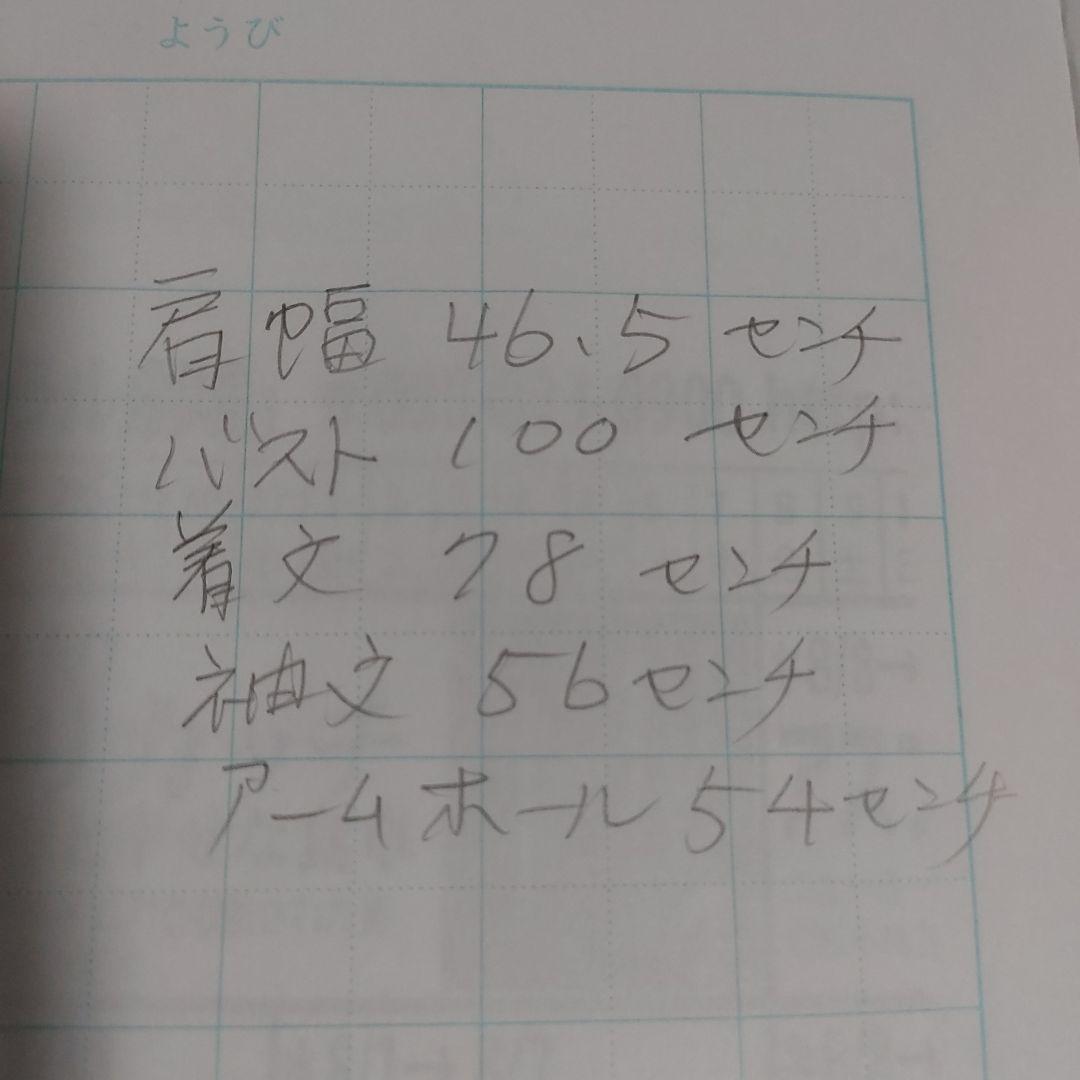 ようび
肩幅 46.5 センチ
バスト 100 センチ
着文 78 センチ
袖文 56センチ
アームホール 54センチ